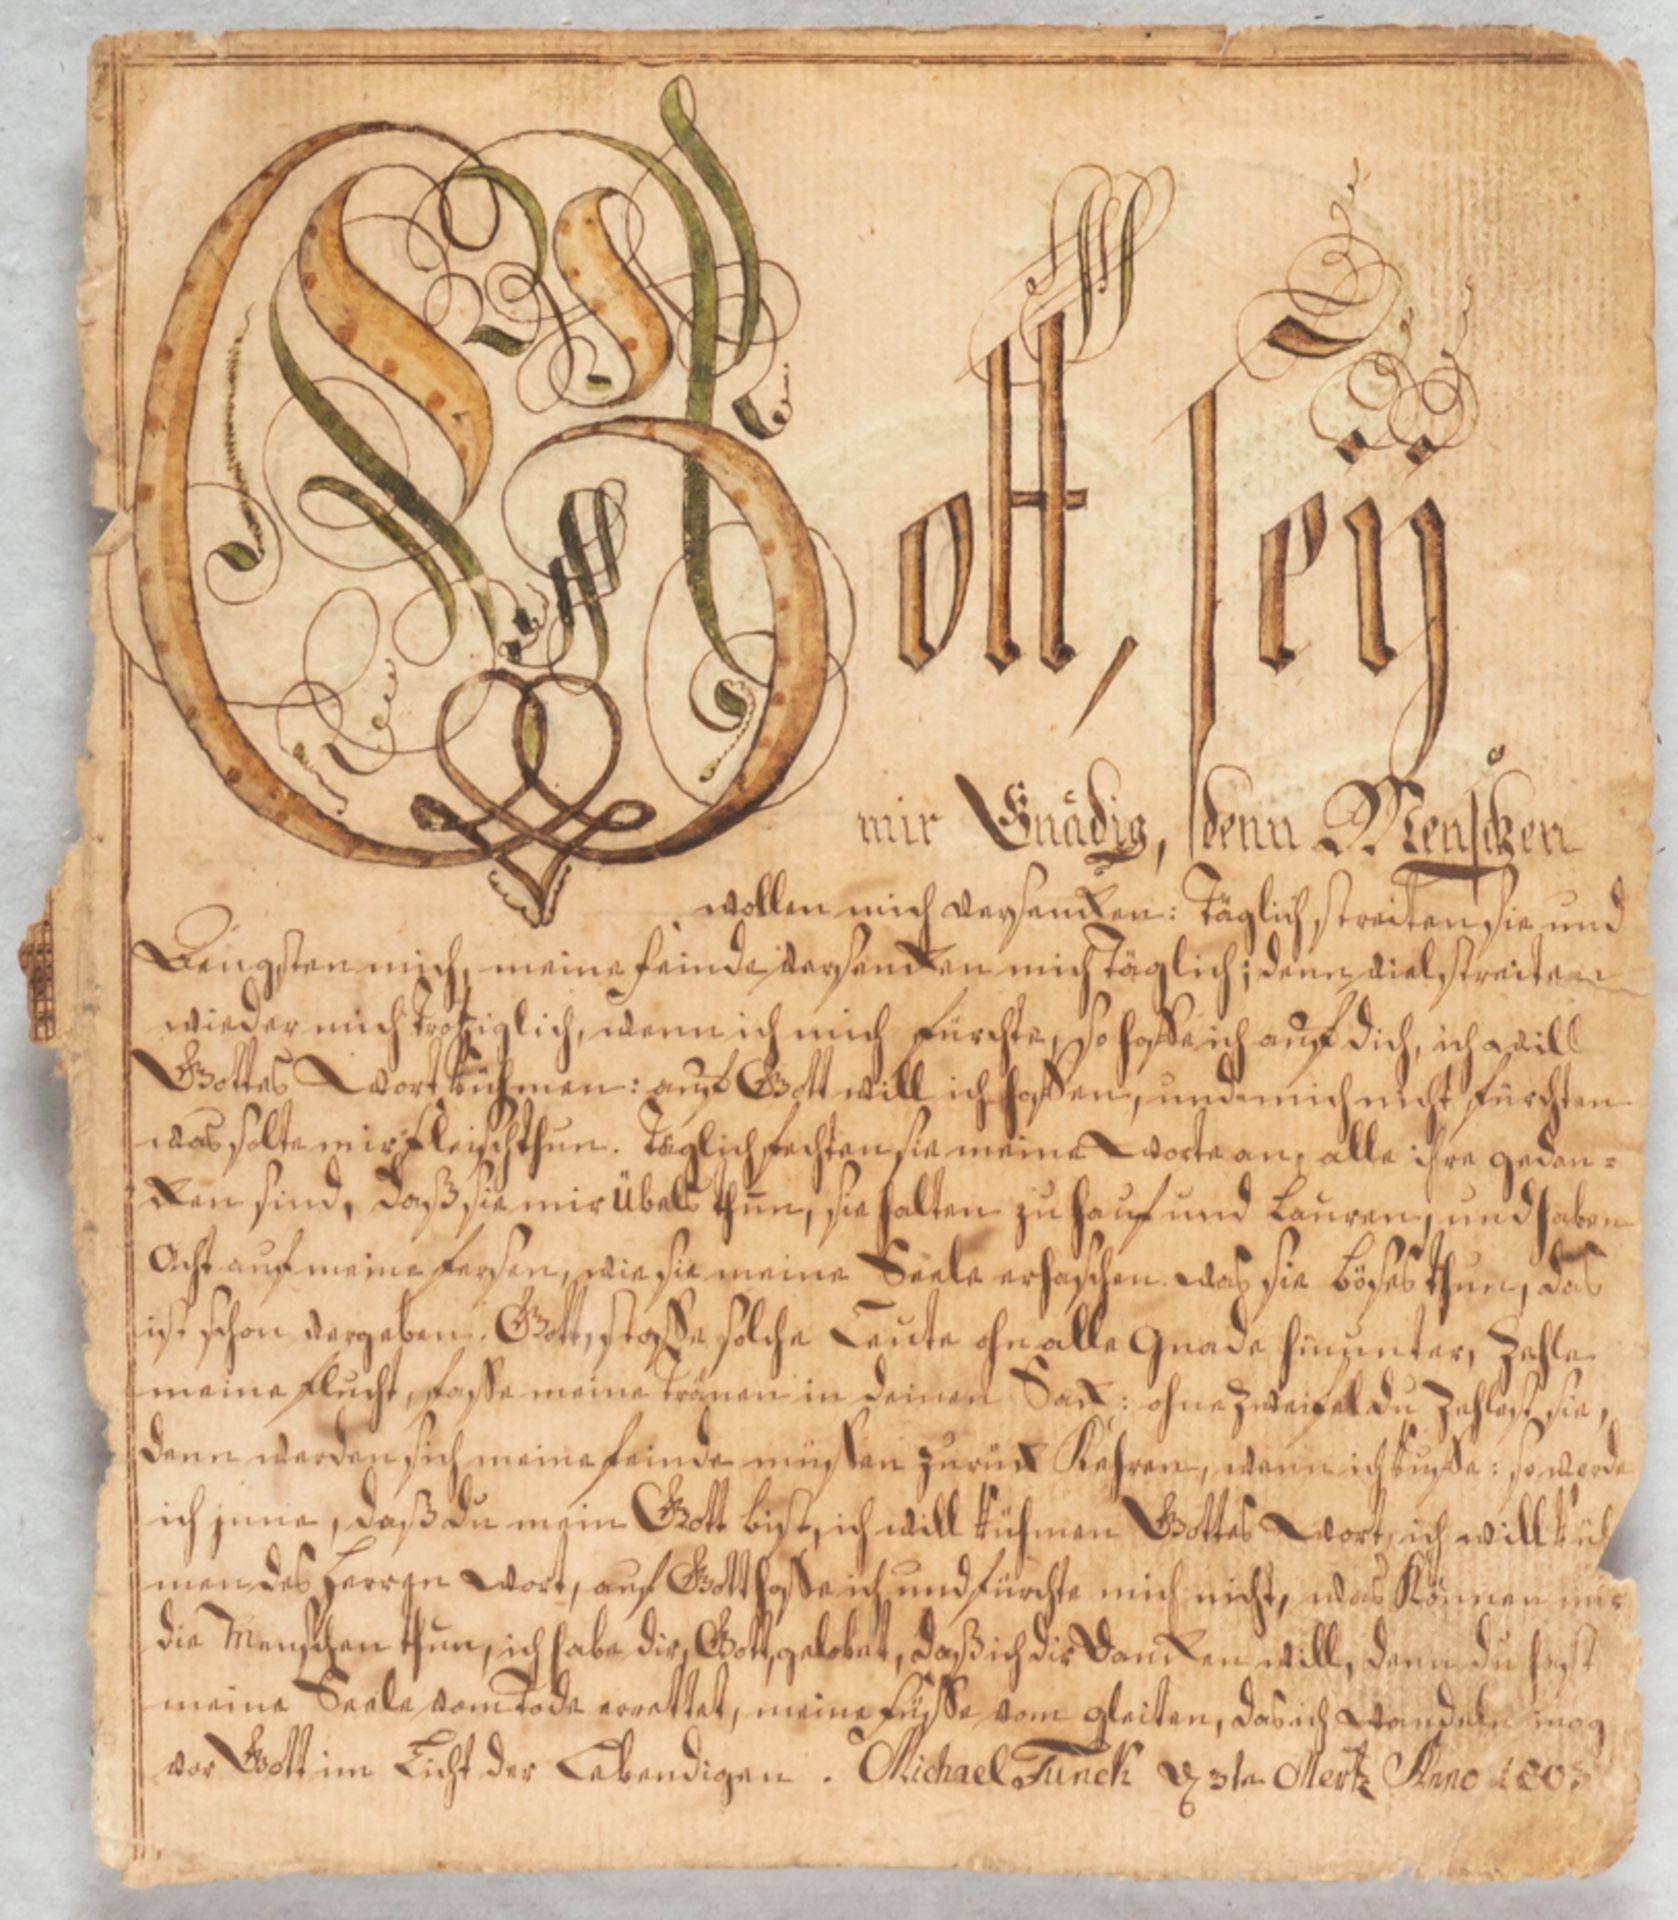 Gott, seÿ
mir Gnädig, denn Menschen
wollen mich versencken: Täglich streiten sie und
Aengsten mich, meine feinde versencken mich Täglich; denn viel streiten
wieder mich trotziglich, wenn ich mich fürchte, so hoffe ich auf dich, ich will
Gottes Wort Rühmen: auf Gott will ich hoffen, und mich nicht fürchten
was solte mir Fleisch thun. Täglich fechten sie meine Worte an, alle ihre geden=
cken sind, daß sie mir Übels thun, sie halten zu hauf und Lauren, und haben
Acht auf meine fersen, wie sie meine Seele erhaschen. was sie böses thun, das
ist schon vergeben. Gott, stosse solche Leute ohn alle Gnade hinunter, Zehle
meine flucht, fasse meine Tränen in deinen Sack: ohne Zweifel du Zehlest sie,
denn werden sich meine feinde müssen zurück Kehren, wenn ich Ruffe: so werde
ich jnne, daß du mein Gott bist, ich will Rühmen Gottes Wort, ich will Rüh
men des Herren Wort, auf Gott hoffe ich und fürchte mich nicht, was Können mir
die Menschen thun, ich habe dir, Gott, gelobet, daß ich dir Dancken will, denn du hast
meine Seele vom Tode errettet, meine füsse vom gleiten, das ich Wandeln mag
vor Gott im Licht der Lebendigen. Michael Funck 3te Mertz Anno